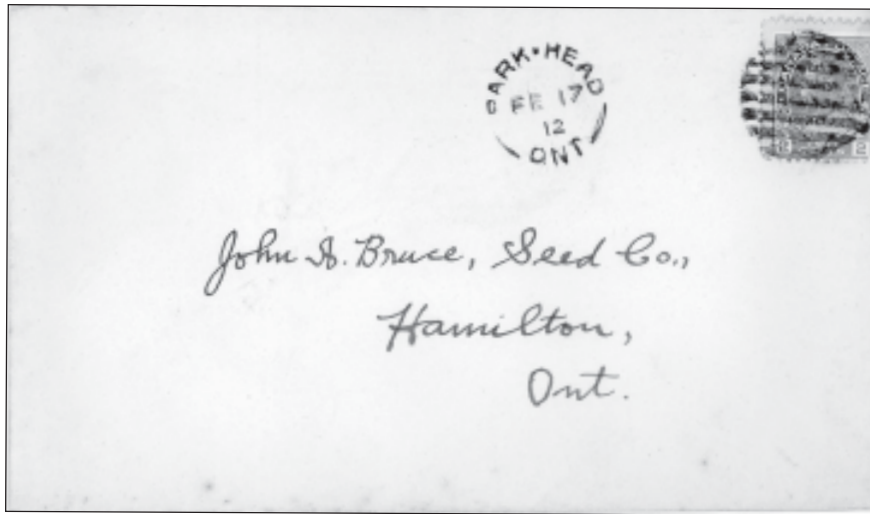 PARK•HEAD
FE 17
12
ONT
2 2
John A. Bruce, Seed Co.,
Hamilton,
Ont.